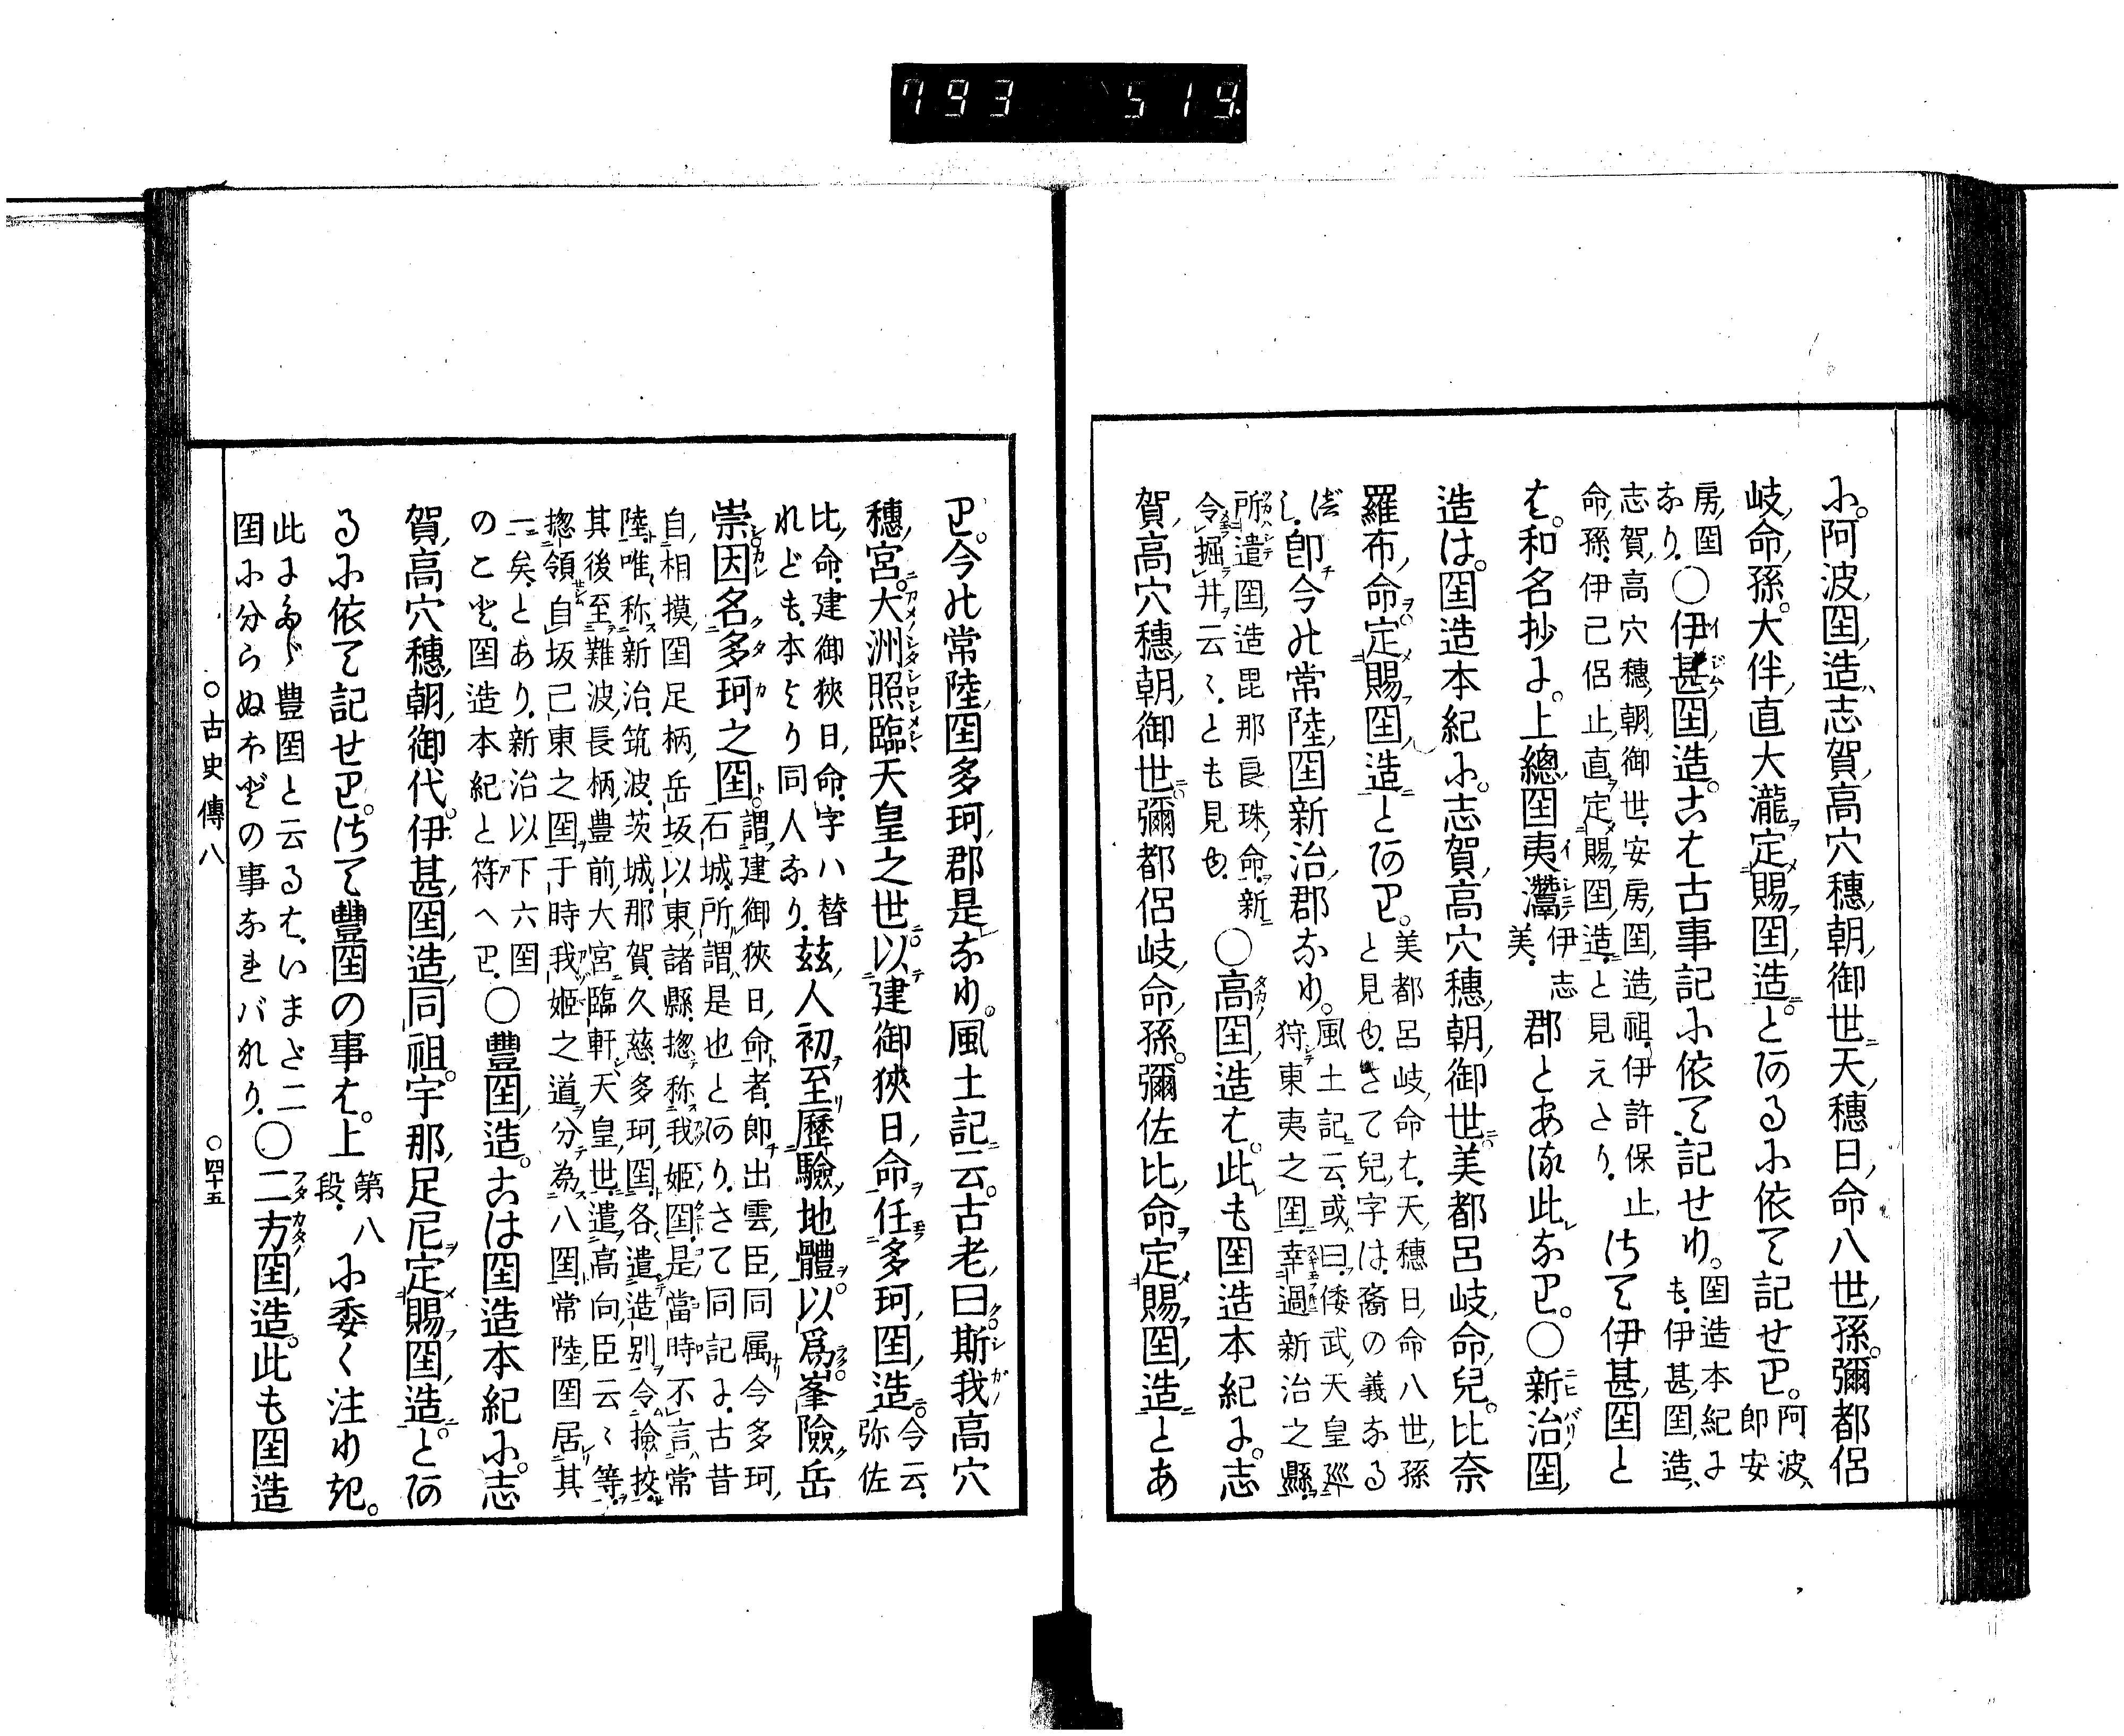 793 519.
に。阿波国造。志賀高穴穂朝御世天穂日命八世孫。彌都侶
岐命孫。大伴直大瀧定賜国造。とあるに依て記せり。阿波即安
房国なり。○伊甚国造。こは古事記に依て記せり。国造本紀にも。伊甚国造。
志賀高穴穂朝御世。安房国造祖。伊許保止命孫。伊己侶止直定賜国造。と見えたり。さて伊甚国と
は。和名抄に。上總国夷灊伊志美。郡とある此なり。○新治国
造は。国造本紀に。志賀高穴穂朝御世。美都呂岐命兒。比奈
羅布命定賜国造とあり。美都呂岐命は。天穂日命八世孫と見ゆ。さて兒字は。裔の義なる
べし。即今の常陸国新治郡なり。風土記云。或曰。倭武天皇巡狩東夷之国。幸過新治之縣。
所遣国造毘那良珠命。新令掘井云々。とも見ゆ。○高国造は。此も国造本紀に。志
賀高穴穂朝御世。彌都侶岐命孫。彌佐比命定賜国造とあ
り。今の常陸国多珂郡是なり。風土記云。古老曰。斯我高穴
穂宮。大洲照臨天皇之世。以建御狹日命任多珂国造。今云。弥佐
比命。建御狹日命。字ハ替れども。本より同人なり。茲人初至歷驗地體。以爲峯險岳
崇因名多珂之国。謂建御狹日命者。即出雲臣同属。今多珂石城所謂是也とあり。さて同記に。古昔
自相摸国足柄岳坂以東諸縣。惣称我姫国。是當時不言常陸。唯称新治。筑波。茨城。那賀。久慈。多珂国。各遣造別令撿挍。
其後至難波長柄豊前大宮臨軒天皇世。遣高向臣云々等。惣領自坂已東之国。于時我姫之道分為八国。常陸国居其
一矣。とあり。新治以下六国のこと。国造本紀と符へり。○豐国造。こは国造本紀に。志
賀高穴穂朝御代。伊甚国造同祖。宇那足尼定賜国造。とあ
るに依て記せり。さて豐国の事は。上第八段。に委く注りき。
此にたゞ豊国と云るは。いまだ二国に分らぬほどの事なれバなり。○二方国造。此も国造
○古史傳八 ○四十五